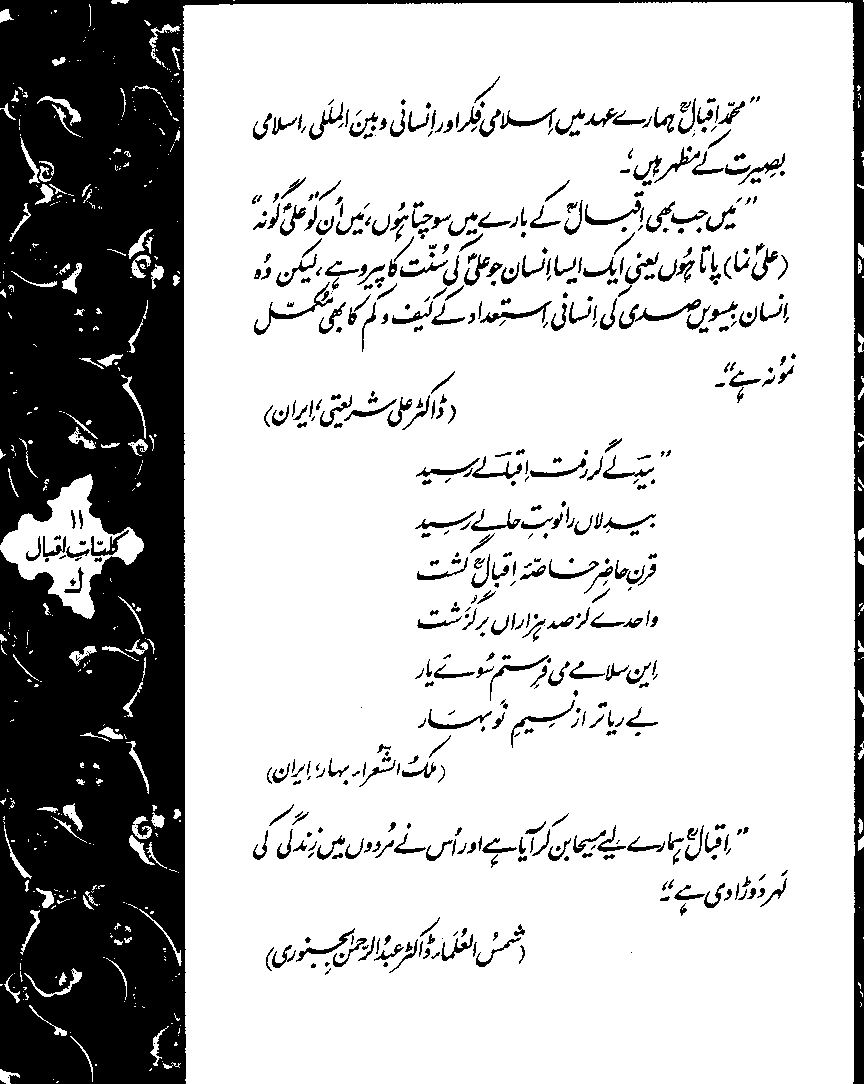 ”محمّد اِقبالؒ ہمارے عہد میں اِسلامی فِکر اور اِنسانی و بینَ المِلَلی اِسلامی
بصِیرت کے مظہر ہیں‘‘۔
”مَیں جب بھی اِقبالؒ کے بارے میں سوچتا ہُوں، مَیں اُن کو ’’علیؑ گُونہ‘‘
(علیؑ نما) پاتا ہُوں یعنی ایک ایسا اِنسان جو علیؑ کی سُنّت کا پیرو ہے، لیکن وُہ
اِنسان بِیسویں صدی کی اِنسانی اِستِعداد کے کَیف و کم کا بھی مُکمّل
نمُونہ ہے‘‘۔
(ڈاکٹر علی شریعتی، اِیران)
”بیدِلے گر رفت اِقبالے رسِید
بیدِلاں را نوبتِ حالے رسِید
قرنِ حاضِر خاصّۂ اِقبالؒ گشت
واحدے کز صد ہزاراں برگُزشت
اِین سلامے می فِرستم سُوئے یار
بے ریا تر از نسِیمِ نَو بہار
(ملکُ الشُّعراء بہار، اِیران)
”اِقبالؒ ہمارے لیے مسِیحا بن کر آیا ہے اور اُس نے مُردوں میں زِندگی کی
لہر دَوڑا دی ہے‘‘۔
(شمسُ العُلماء ڈاکٹر عبدُالرّحمٰن بجنوری)
۱۱
کلیّاتِ اِقبال
ک